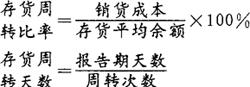 存货周转比率=销货成本/存货平均余额×100%
存货周转天数=报告期天数/周转次数